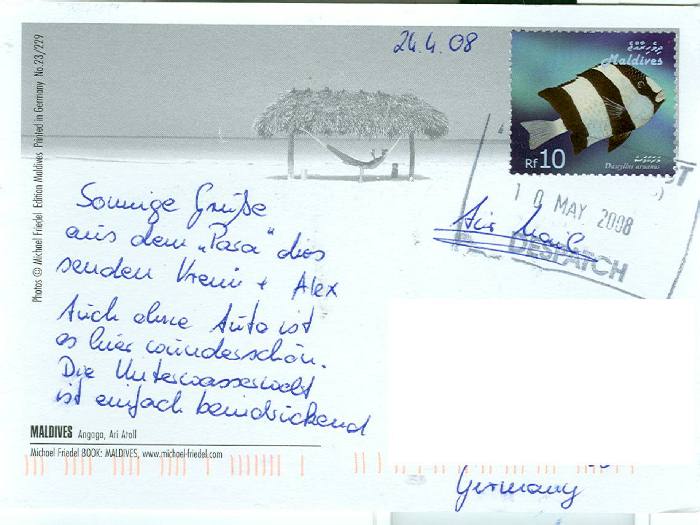 24.4.08
ދިވެހިރާއްޖެ
Maldives
Rf 10
Dascyllus aruanus
10 MAY 2008
Air Mail
DESPATCH
Photos © Michael Friedel Edition Maldives Printed in Germany No.23/229
Sonnige Grüße
aus dem „Para" dies
senden Vreni + Alex
Auch ohne Auto ist
es hier wunderschön.
Die Unterwasserwelt
ist einfach beindrückend
MALDIVES Angaga, Ari Atoll
Michael Friedel BOOK: MALDIVES, www.michael-friedel.com
Germany